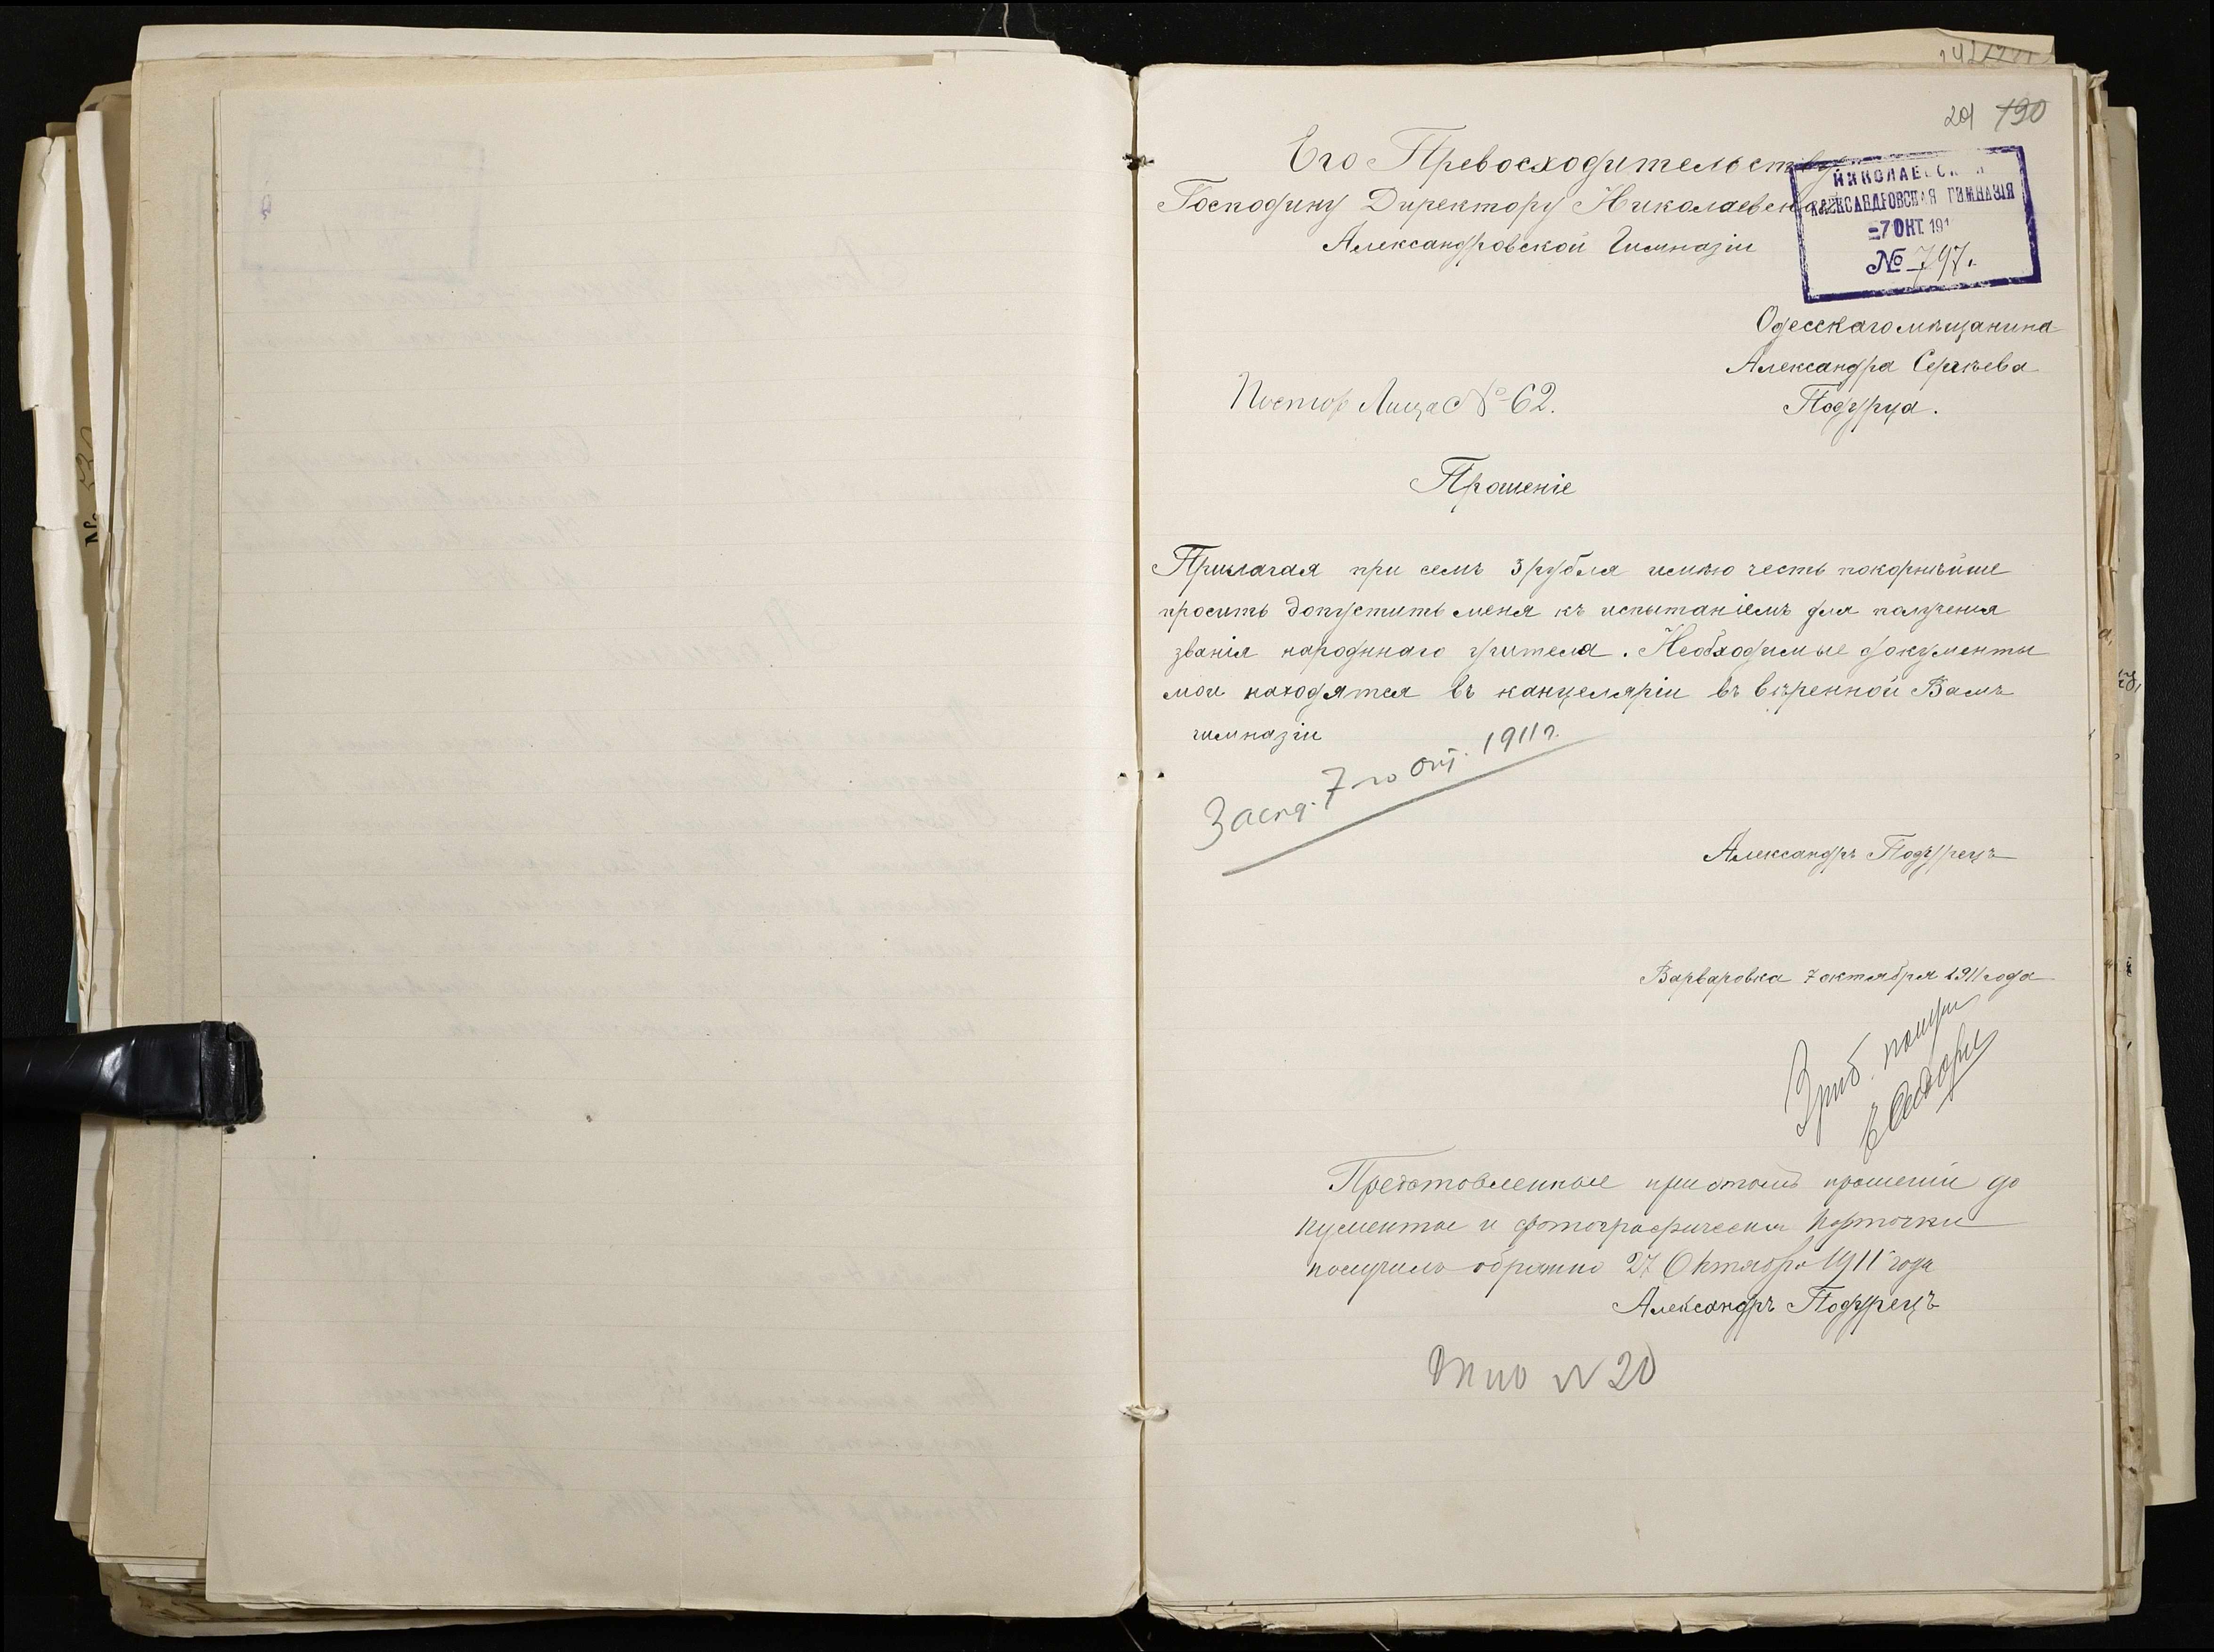 201 190
Его Превосходительству
Господину Директору Николаевской
Александровской Гимназіи
НИКОЛАЕВСКАЯ
АЛЕКСАНДРОВСКАЯ ГИМНАЗІЯ
=7 ОКТ. 191
№ 797.
Одесскаго мѣщанина
Александра Сергѣева
Подурца.
Постор Лица № 62.
Прошеніе
Прилагая при семъ 3 рубля имѣю честь покорнѣйше
просить допустить меня къ испытаніемъ для полученія
званія народннаго учителя. Необходимые документы
мои находятся въ канцеляріи въ вѣренной Вамъ
гимназіи
7-го окт. 1911 г.
Александръ Подурецъ
Варваровка 7 октября 1911 года
Представленные при этомъ прошеніи до
кументы и фотографическія карточки
получилъ обратно 27 Октября 1911 года
Александръ Подурецъ
N 20